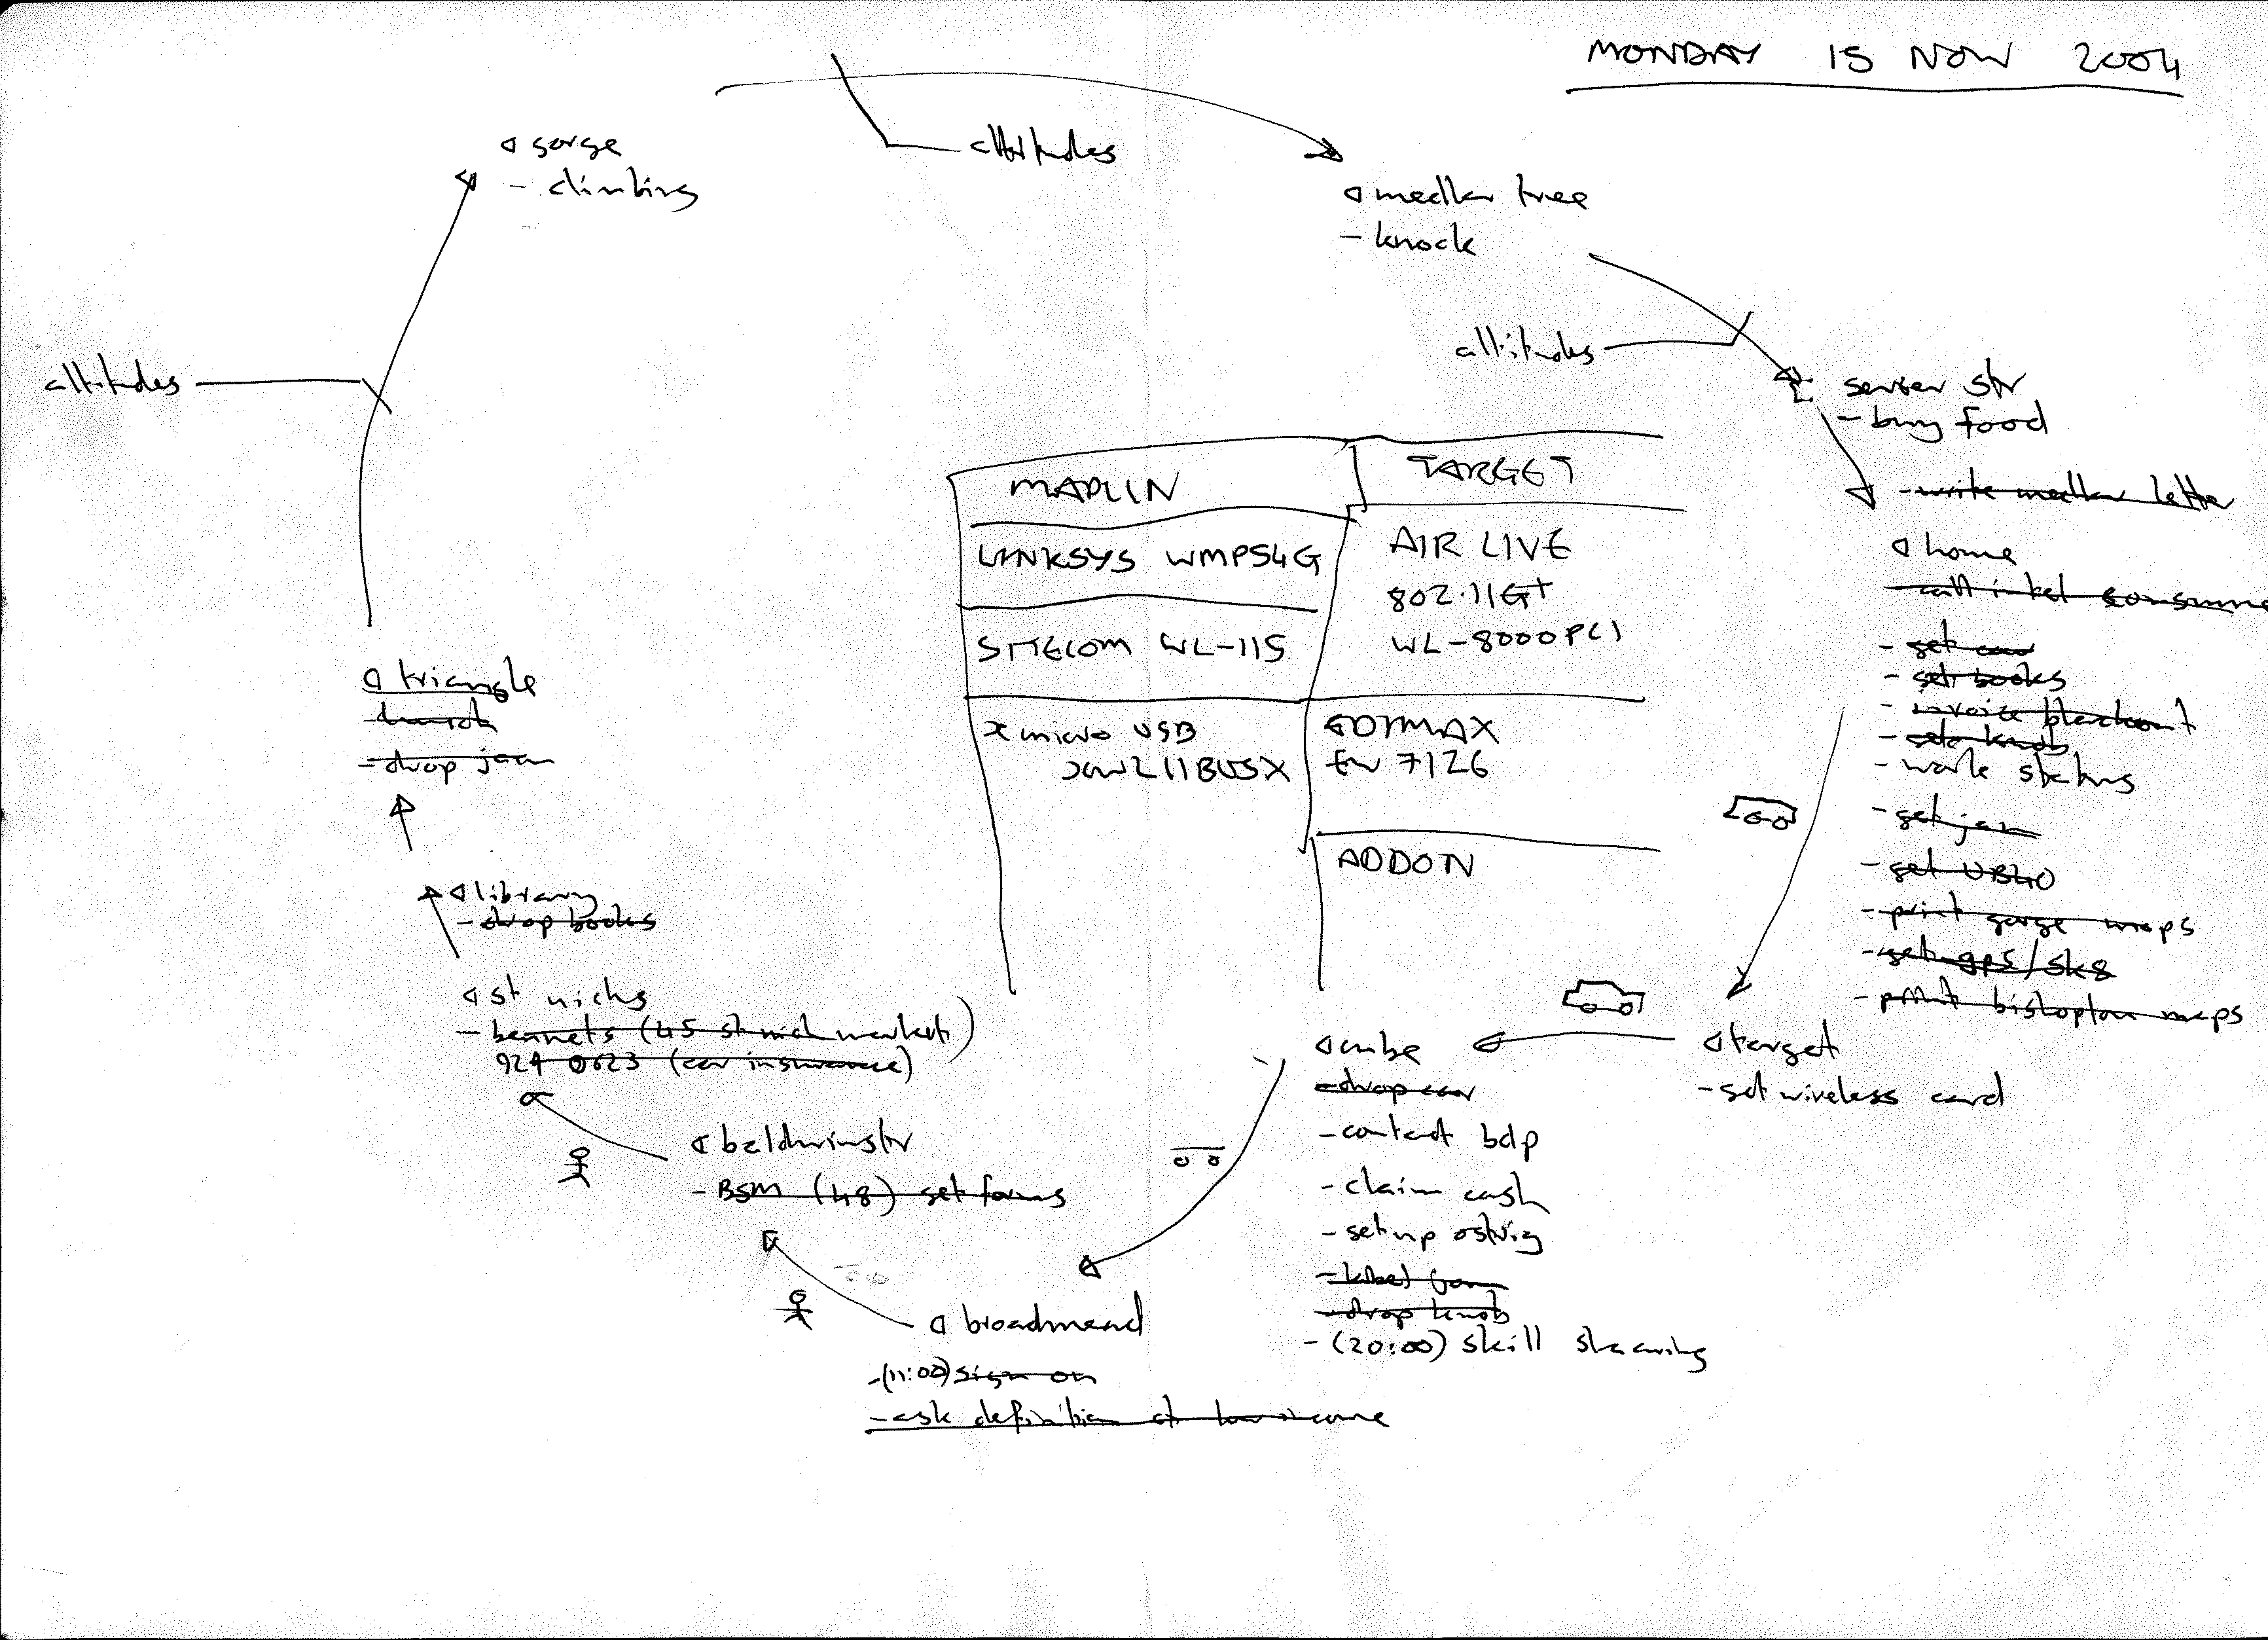 MONDAY 15 NOV 2004
gorge
- climbing
altitudes
medlar tree
- knock
altitudes
altitudes
str
- buy food
- write medlar letter
home
- call intel
- get books
- invoice
- get knob
- work status
- get jam
- get UB40
- print gorge maps
- get gps/sk8
- print bishopton maps
target
- get wireless card
cube
- drop car
- contact bdp
- claim cash
- setup ostrig
- label jam
- drop knob
- (20:00) skill sharing
broadmead
- (11:00) sign on
- ask definition of low income
baldwin str
- BSM (48) get forms
st nichs
- bennets (45 st nich market)
924 0623 (car insurance)
library
- drop books
triangle
- drop jam
MAPLIN
LINKSYS WMP54G
SITECOM WL-115
x micro USB
XWL11BUSX
TARGET
AIR LIVE
802.11G+
WL-8000PCI
EDIMAX
EW 7126
ADDON